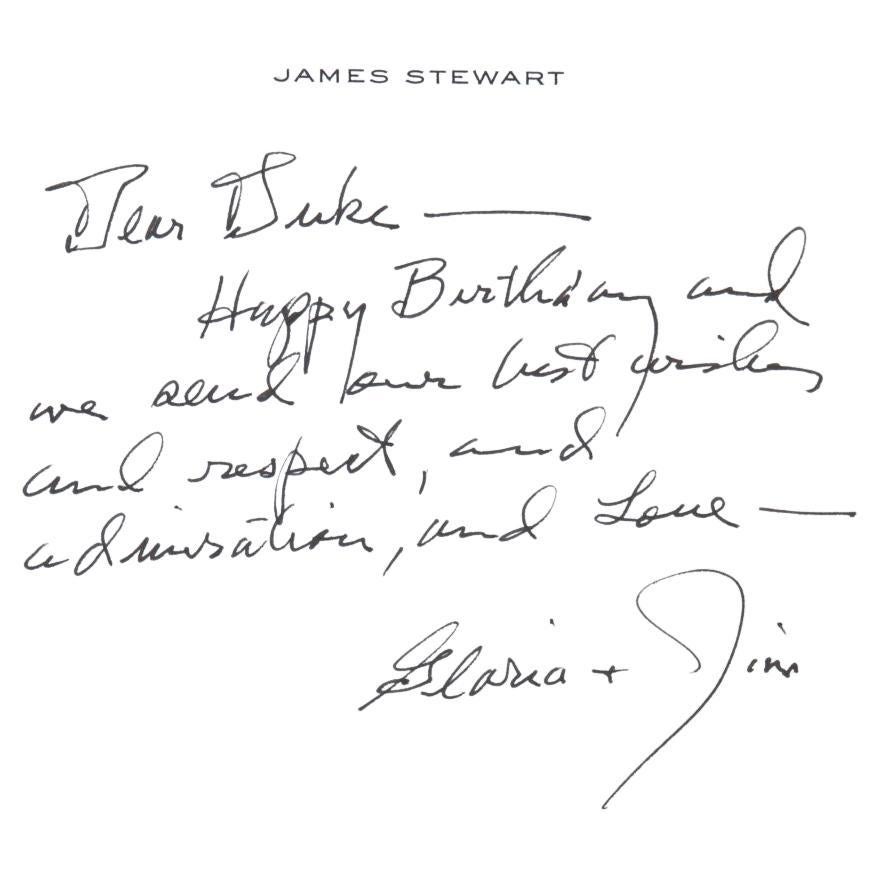 JAMES STEWART
Dear Duke —
Happy Birthday and
we send our best wishes
and respect, and
admiration, and Love —
Gloria + Jim